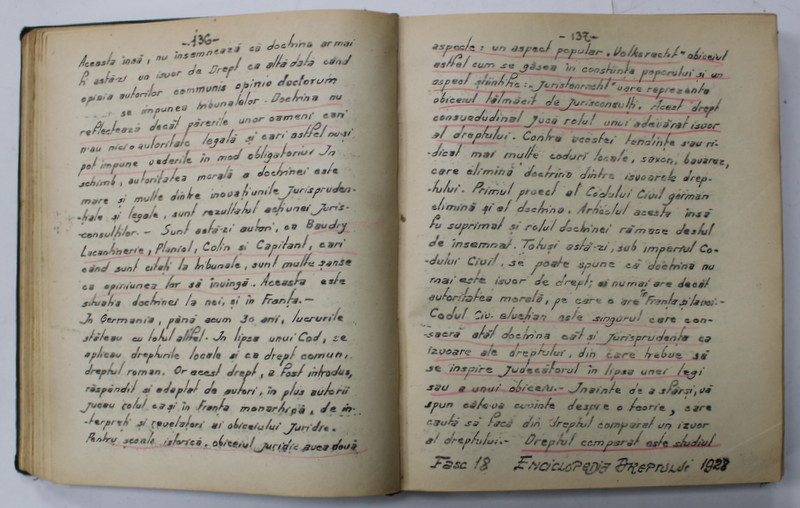 -136-
Aceasta însă, nu însemnează că doctrina ar mai
fi astă-zi un isvor de Drept ca altă dată când
opinia autorilor communis opinio doctorum
se impunea tribunalelor. Doctrina nu
reflectează decât părerile unor oameni cari
n'au nicio autoritate legală și cari astfel nu-și
pot impune vederile în mod obligatoriu. In
schimb, autoritatea morală a doctrinei este
mare și multe dintre inovațiunile jurispruden-
-țiale și legale, sunt rezultatul acțiunei juris-
-consulților. - Sunt astă-zi autori, ca Baudry
Lacantinerie, Planiol, Colin și Capitant, cari
când sunt citați la tribunale, sunt multe șanse
ca opiniunea lor să învingă. Aceasta este
situația doctrinei la noi, și in Franța. -
In Germania, până acum 30 ani, lucrurile
stăteau cu totul altfel. In lipsa unui Cod, se
aplicau drepturile locale și ca drept comun,
dreptul roman. Or acest drept, a fost introdus,
răspândit și adaptat de autori, în plus autorii
jucau rolul ca și in Franța monarhică, de in-
-terpreți și revelatori ai obiceiului juridic.
Pentru școala istorică, obiceiul juridic avea două
-137-
aspecte: un aspect popular "Volksracht" obiceiul
astfel cum se găsea in conștiința poporului și un
aspect științific: "Juristenracht" care reprezenta
obiceiul tălmăcit de jurisconsulți. Acest drept
consuedudinal juca rolul unui adevărat isvor
al dreptului. Contra acestei tendințe s'au ri-
-dicat mai multe coduri locale, saxon, bavarez,
care elimină doctrina dintre isvoarele drep-
-tului. Primul proect al Codului Civil german
elimină și el doctrina. Articolul acesta însă
fu suprimat și rolul doctrinei rămase destul
de însemnat. Totuși astă-zi, sub imperiul Co-
-dului Civil, se poate spune că doctrina nu
mai este isvor de drept; ea numai are decât
autoritatea morală, pe care o are în Franța și la noi. -
Codul Civ. elvețian este singurul care con-
sacră atât doctrina cât și jurisprudența ca
izvoare ale dreptului, din care trebue să
se inspire judecătorul în lipsa unei legi
sau a unui obiceiu. - Inainte de a sfârși, vă
spun câteva cuvinte despre o teorie, care
caută să facă din dreptul comparat un izvor
al dreptului. - Dreptul comparat este studiul
Fasc 18 ENCICLOPEDIA DREPTULUI 1928